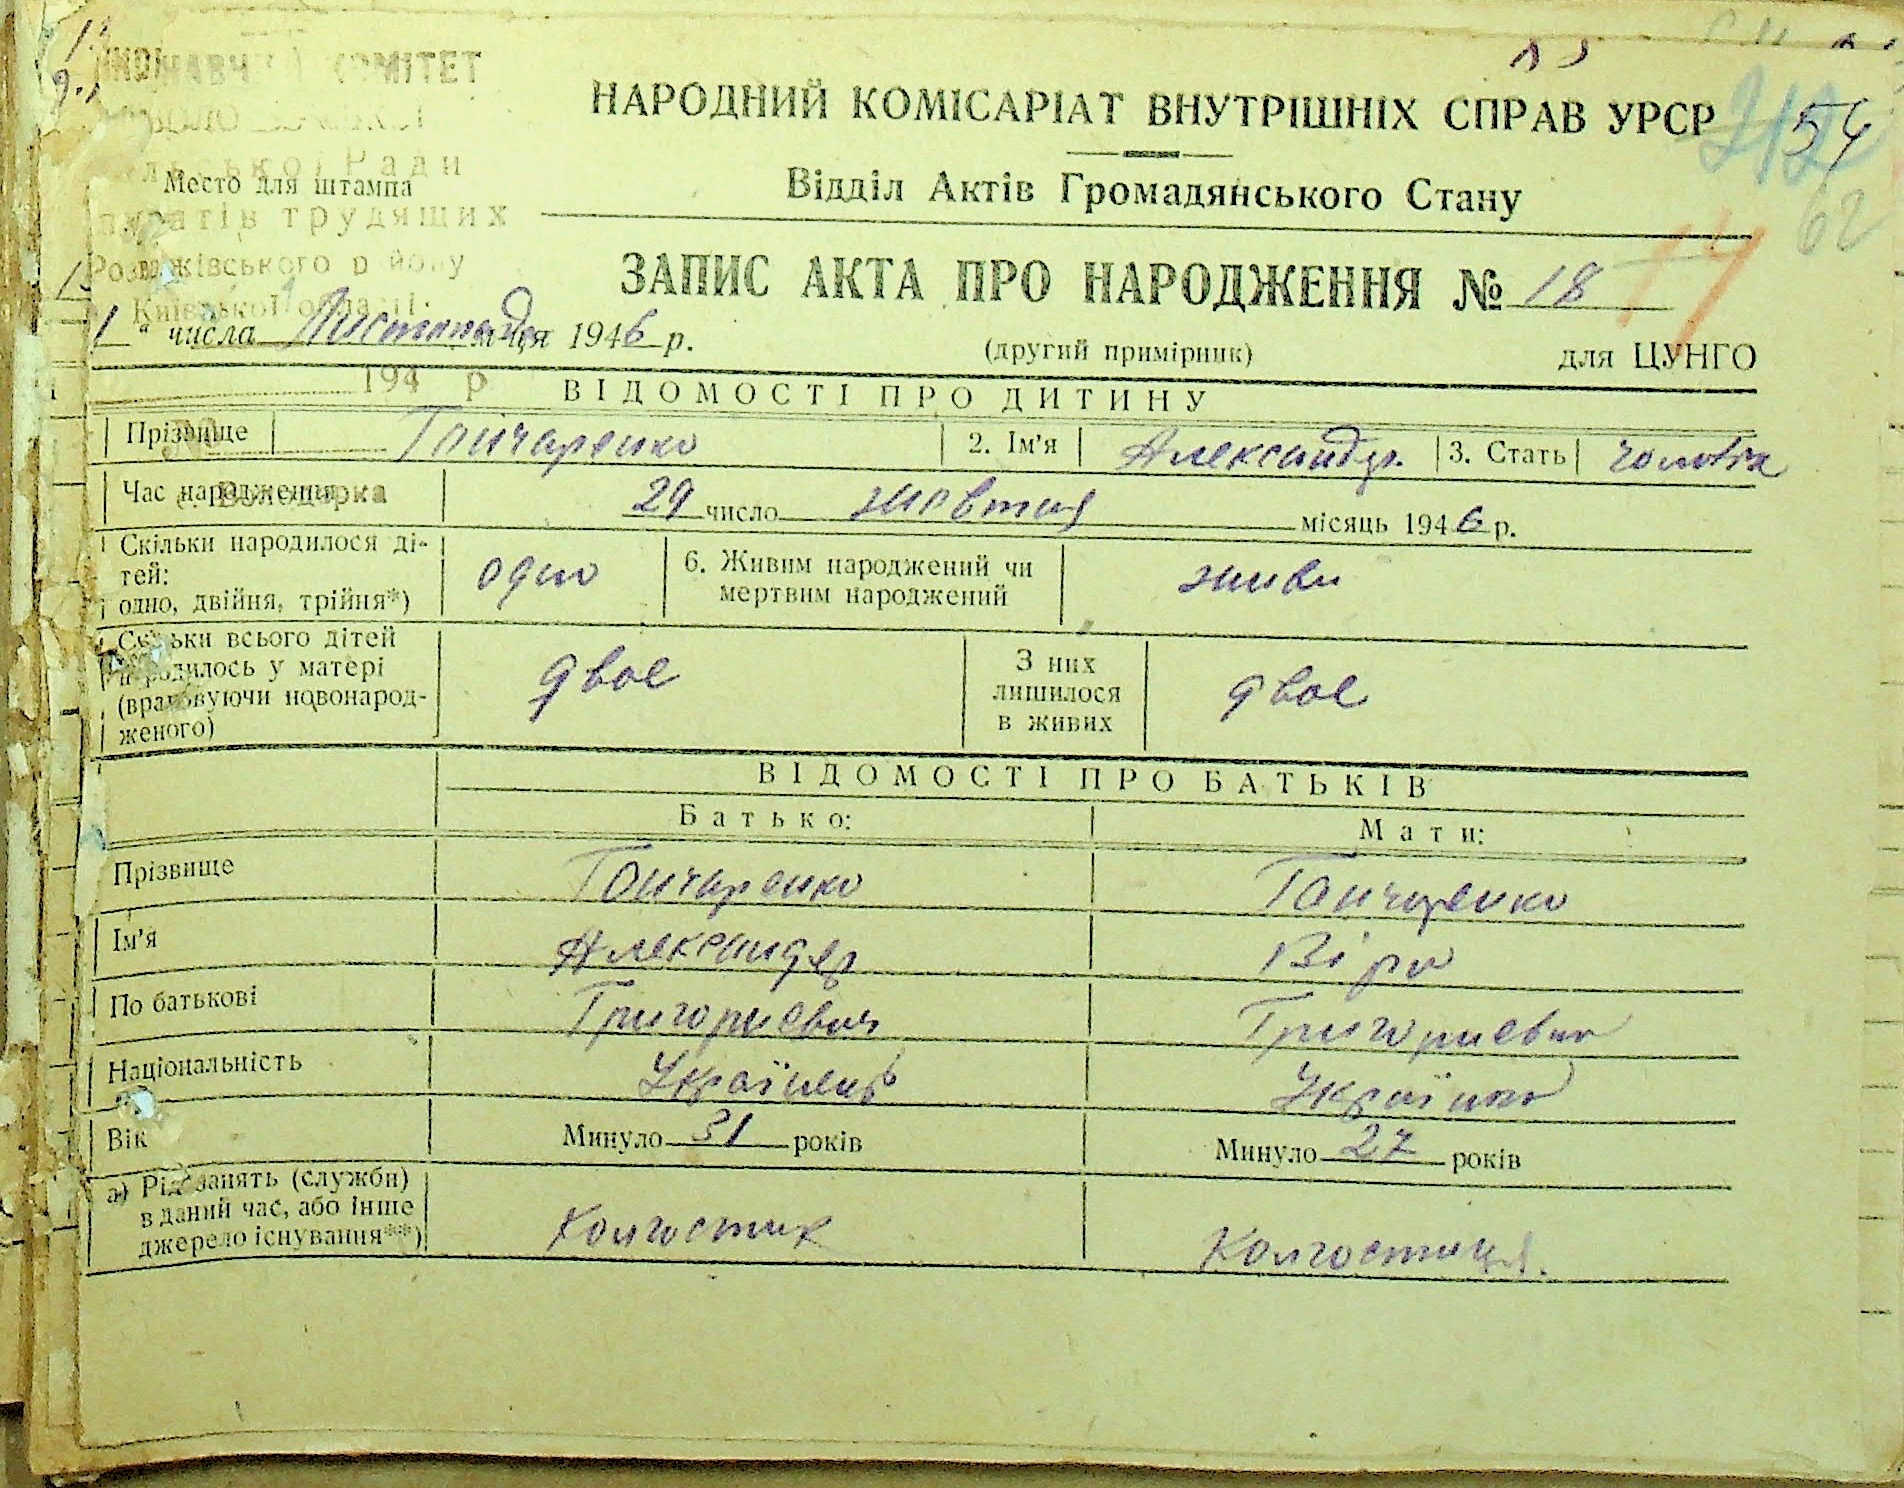 КОМІТЕТ
Ради
Место для штампа
трудящих
Розважівського району
Київської області
НАРОДНИЙ КОМІСАРІАТ ВНУТРІШНІХ СПРАВ УРСР
54
62
Відділ Актів Громадянського Стану
ЗАПИС АКТА ПРО НАРОДЖЕННЯ № 18
1 " числа Листопада м-ця 1946 р.
(другий примірник) для ЦУНГО
194 р
ВІДОМОСТІ ПРО ДИТИНУ
Прізвище Гончаренко 2. Ім'я Александр. 3. Стать чоловіча
Час народження 29 число жовтня місяць 1946 р.
Скільки народилося ді-
тей:
одно, двійня, трійня*) одно 6. Живим народжений чи
мертвим народжений живи
Скільки всього дітей
народилось у матері
(враховуючи новонарод-
женого) двое З них
лишилося
в живих двое
ВІДОМОСТІ ПРО БАТЬКІВ
Батько: Мати:
Прізвище Гончаренко Гончаренко
Ім'я Александер Віра
По батькові Григориевич Григориевна
Національність Українець Українка
Вік Минуло 31 років Минуло 27 років
а) Рід занять (служби)
в даний час, або інше
джерело існування**) Колгостник Колгостниця.